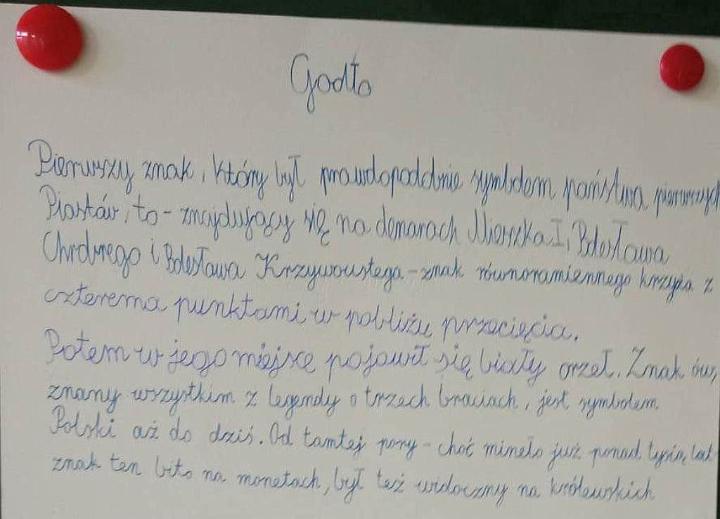 Godło
Pierwszy znak, który był prawdopodobnie symbolem państwa pierwszych
Piastów, to - znajdujący się na denarach Mieszka I, Bolesława
Chrobrego i Bolesława Krzywoustego - znak równoramiennego krzyża z
czterema punktami w pobliżu przecięcia.
Potem w jego miejsce pojawił się biały orzeł. Znak ów,
znany wszystkim z legendy o trzech braciach, jest symbolem
Polski aż do dziś. Od tamtej pory - choć mineło już ponad tysiąc lat
znak ten bito na monetach, był też widoczny na królewskich